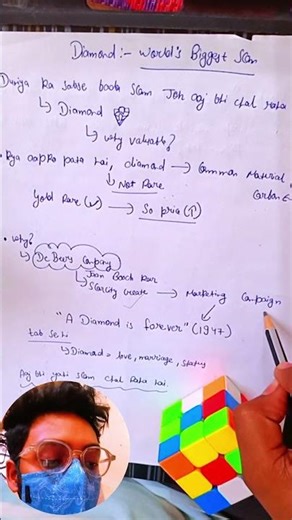 Diamond :- World's Biggest Scam
Duniya ka sabse bada Scam Joh aaj bhi chal raha
↳ Diamond
↳ why valuable?
• Kya aapko pata hai, diamond → Common Material
↓ Carbon
Not Rare
Gold Rare (✓) → So price (↑)
• why?
↳ De Beers Company
↳ Jaan Booch kar
↳ Scarcity create → Marketing Campaign
"A Diamond is forever" (1947)
tab se hi
↳ Diamond = love, marriage, status
Aaj bhi yahi scam chal raha hai.